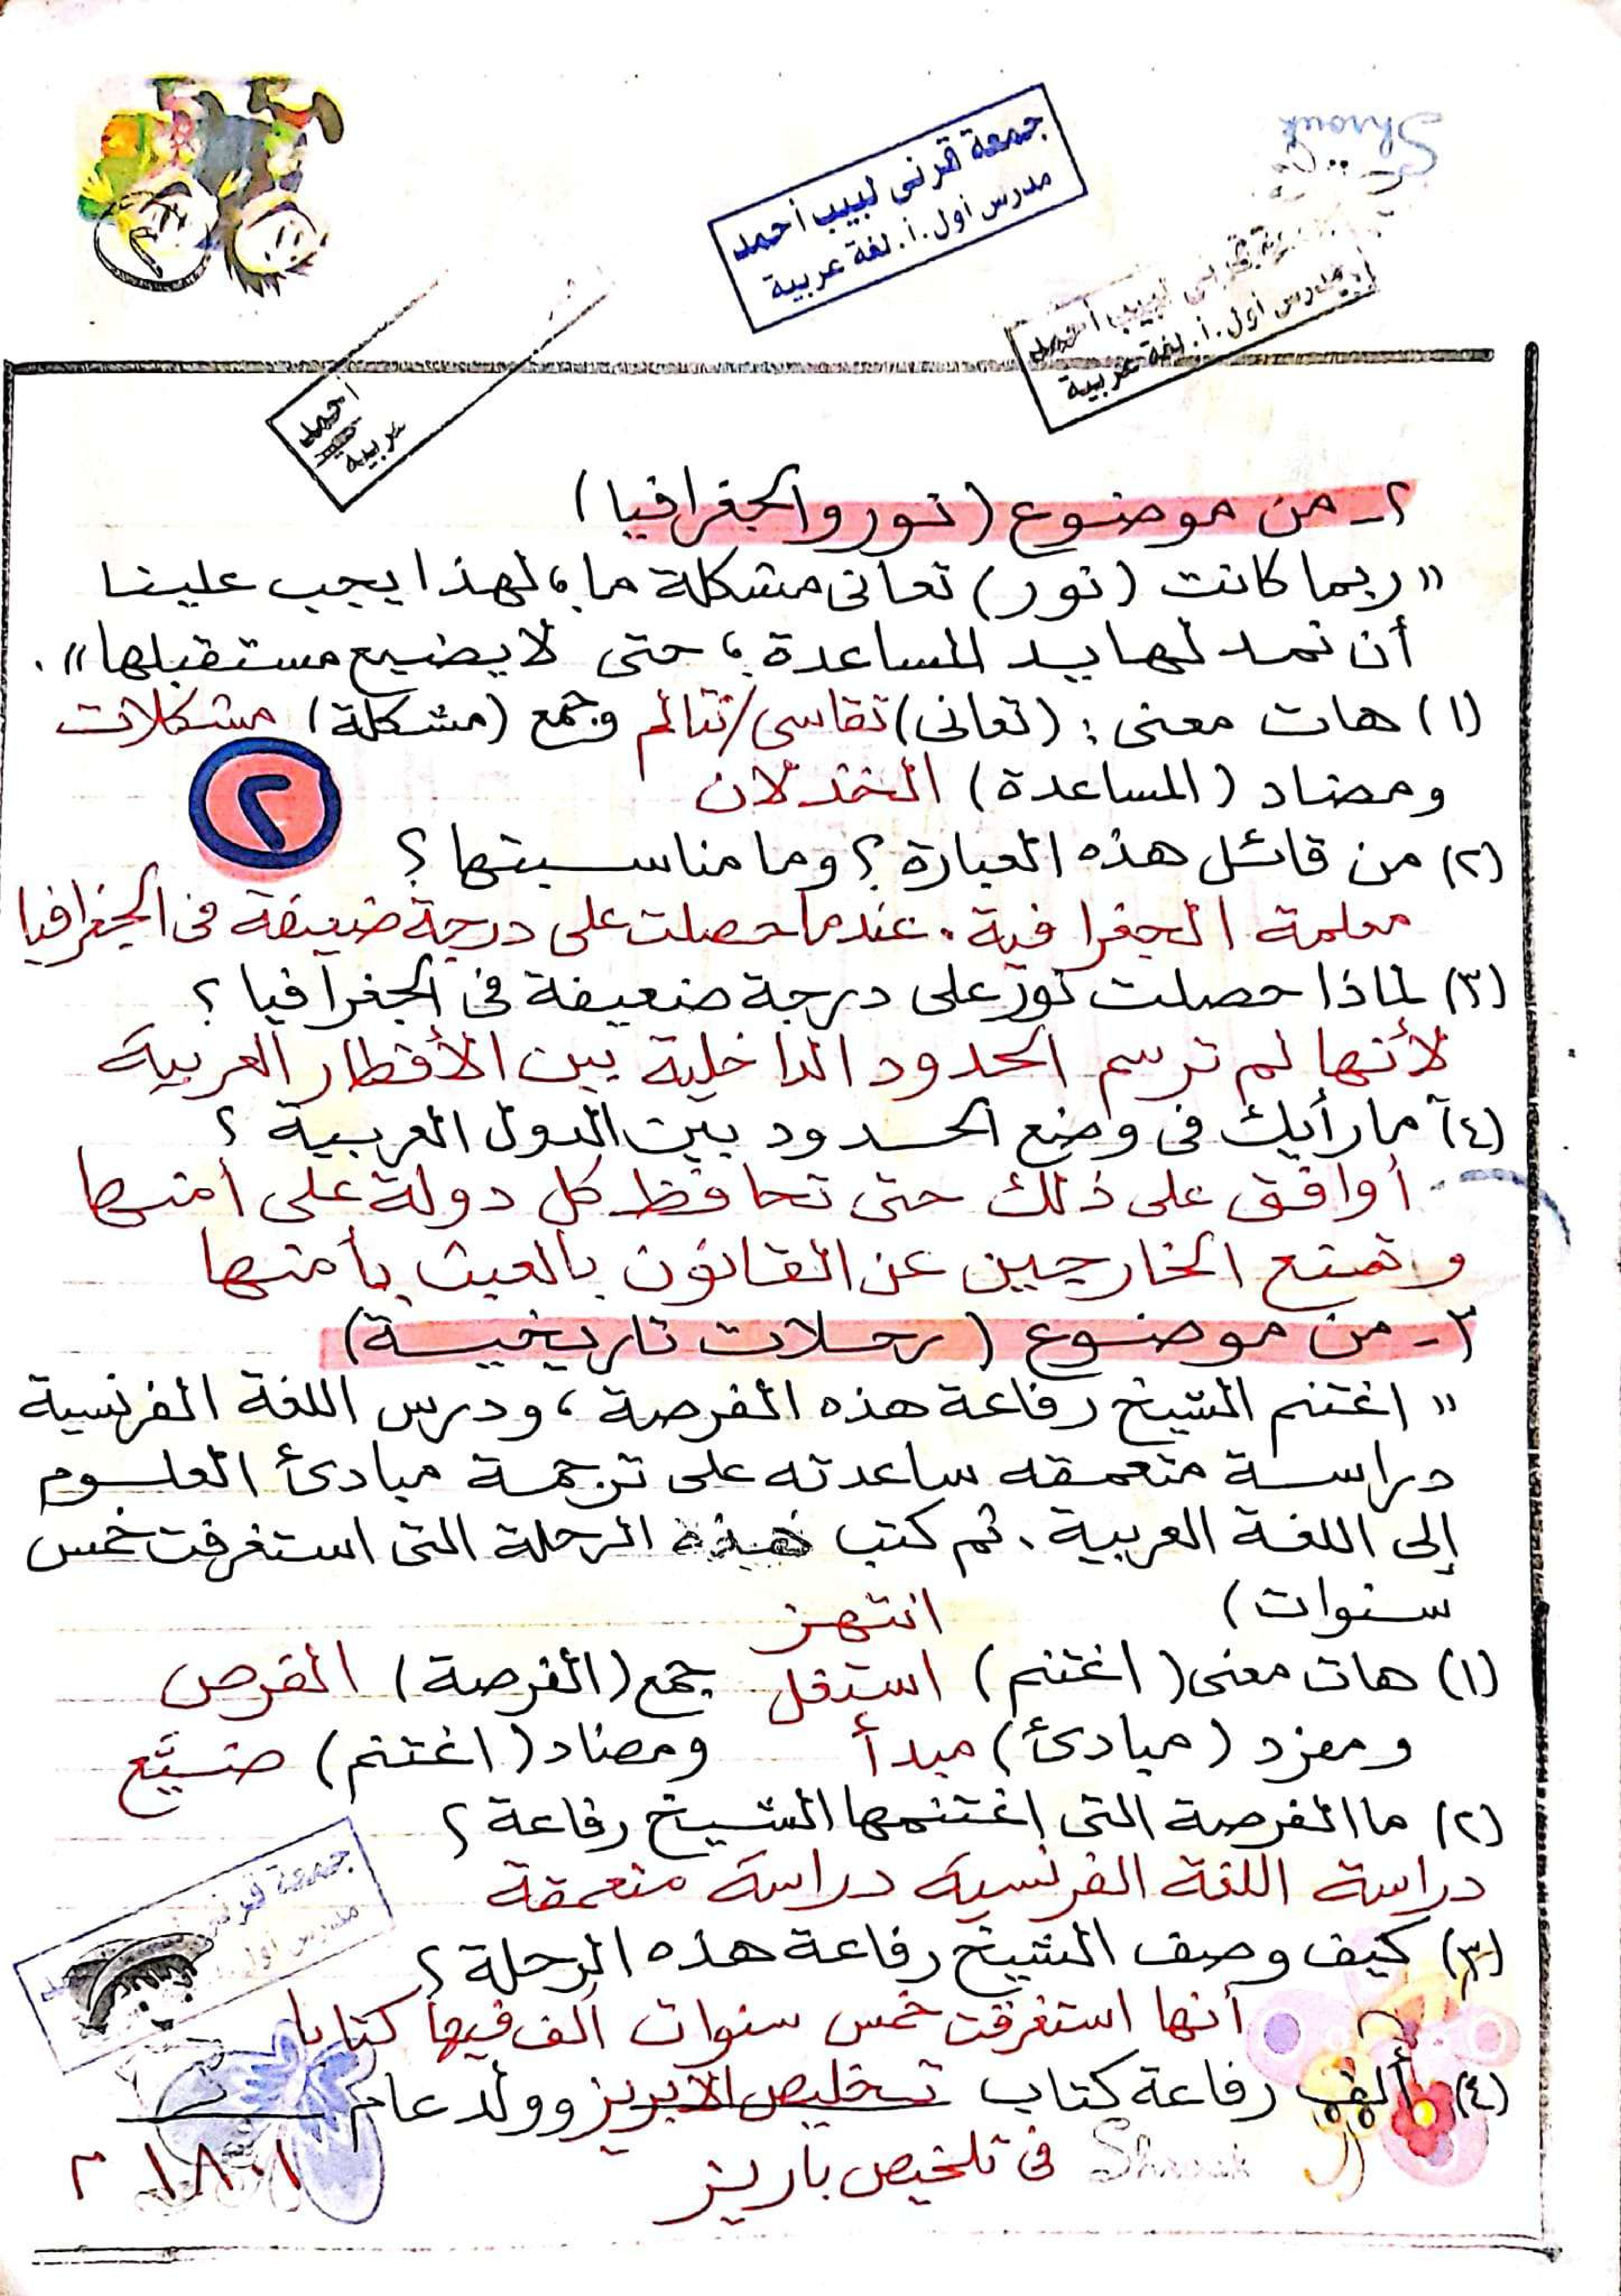 Shrouk
جمعة قرنى لبيب أحمد
مدرس أول.أ.لغة عربية
قرنى لبيب أحمد
مدرس أول.أ.لغة عربية
أحمد
عربية
٢ـ من موضوع (نور والجغرافيا)
"ربما كانت (نور) تعانى مشكلة ما، لهذا يجب علينا
أن نمد لها يد المساعدة، حتى لا يضيع مستقبلها".
(١) هات معنى: (تعانى) تقاسى/تتألم وجمع (مشكلة) مشكلات
ومضاد (المساعدة) الخذلان
٢
(٢) من قائل هذه العبارة؟ وما مناسبتها؟
معلمة الجغرافية. عندما حصلت على درجة ضعيفة فى الجغرافيا
(٣) لماذا حصلت نور على درجة ضعيفة فى الجغرافيا؟
لأنها لم ترسم الحدود الداخلية بين الأقطار العربية
(٤) ما رأيك فى وضع الحدود بين الدول العربية؟
أوافق على ذلك حتى تحافظ كل دولة على أمنها
وتمنع الخارجين عن القانون بالعبث بأمنها
٣ـ من موضوع (رحلات تاريخية)
"اغتنم الشيخ رفاعة هذه الفرصة، ودرس اللغة الفرنسية
دراسة متعمقه ساعدته على ترجمة مبادئ العلوم
إلى اللغة العربية، ثم كتب هذه الرحلة التى استغرقت خمس
سنوات)
انتهز
(١) هات معنى (اغتنم) استغل جمع (الفرصة) الفرص
ومفرد (مبادئ) مبدأ ومضاد (اغتنم) ضيَّع
(٢) ما الفرصة التى اغتنمها الشيخ رفاعة؟
دراسة اللغة الفرنسية دراسة متعمقة
(٣) كيف وصف الشيخ رفاعة هذه الرحلة؟
أنها استغرقت خمس سنوات ألف فيها كتابا
(٤) ألف رفاعة كتاب تخليص الابريز وولد عام
فى تلخيص باريز
١٨٠١ م
Shrouk
جمعة قرنى
مدرس أول